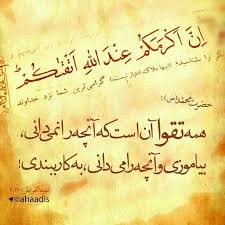 اِنَّ اَكْرَمَكُمْ عِنْدَ اللهِ اَتْقٰىكُمْ
گرامی ترین شما نزد خداوند
حضرت محمد(ص):
همه تقوا آن است که آنچه را نمی دانی،
بیاموزی و آنچه را می دانی، به کار بندی!
@ahaadis